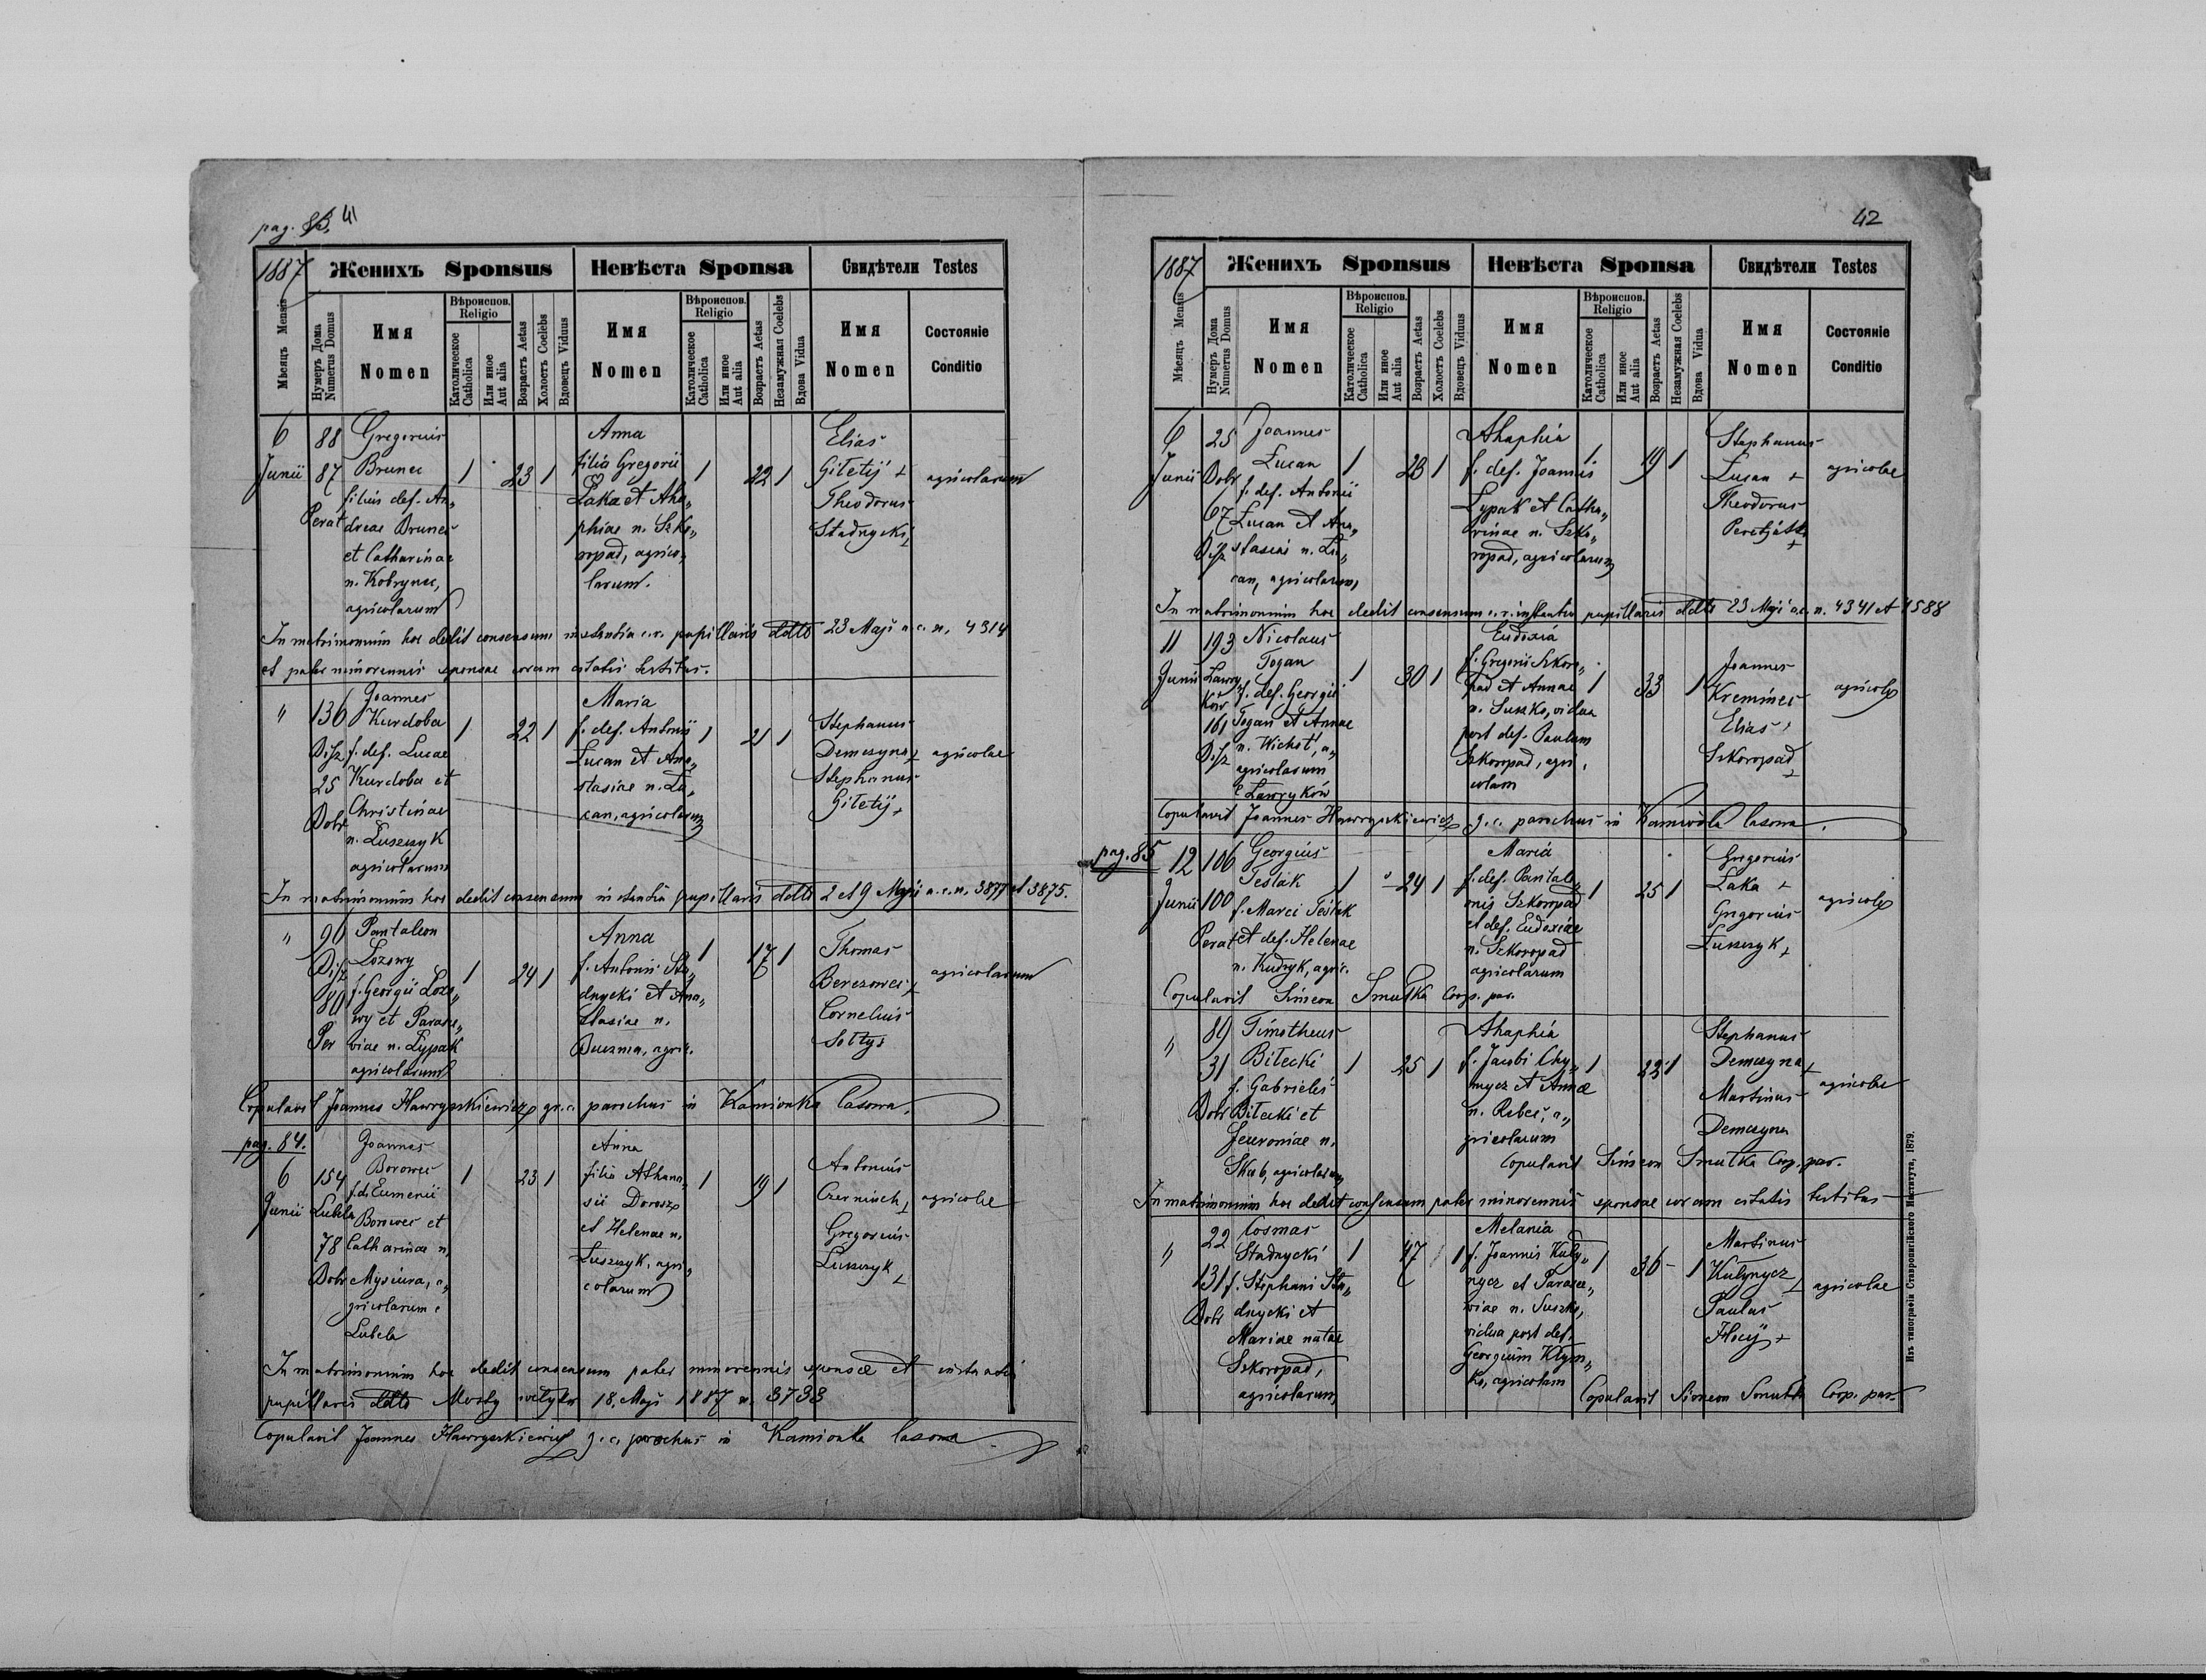 pag. 83. 41
1887 Женихъ Sponsus Невѣста Sponsa Свидѣтели Testes
Мѣсяцъ Mensis
Нумеръ Дома
Numerus Domus
Имя
Nomen
Вѣроиспов.
Religio
Католическое
Catholica
Или иное
Aut alia
Возрастъ Aetas
Холостъ Coelebs
Вдовецъ Viduus
Имя
Nomen
Вѣроиспов.
Religio
Католическое
Catholica
Или иное
Aut alia
Возрастъ Aetas
Незамужная Coelebs
Вдова Vidua
Имя
Nomen
Состояніе
Conditio
6
Junii
88
87
Perat
Gregorius
Brunec
filius def. An„
dreae Brunec
et Catharinae
n. Kobrynec,
agricolarum
1 23 1
Anna
filia Gregorii
Łaka et Aha„
phiae n. Szko„
ropad, agrico„
larum.
1 22 1
Elias
Giletij +
Theodorus
Stadnycki +
agricolarum
In matrimonium hoc dedit consensum instantia c.r. pupillaris ddto 23 Maji a.c. n. 4314
et pater minorennis sponsae coram citatis testibus.
"
136
Disz
25
Dobr
Joannes
Kurdoba
f. def. Lucae
Kurdoba et
Christinae
n. Łuszczyk
agricolarum
1 22 1
Maria
f. def. Antonii
Łucan et Ana„
stasiae n. Łu„
can, agricolarum
1 21 1
Stephanus
Demczyna +
Stephanus
Giletij +
agricolae
In matrimonium hoc dedit consensum instantia pupillaris ddto 2 et 9 Maji a.c. n. 3877 et 3875.
"
96
Disz
80
Per
Pantaleon
Lozowy
f. Georgii Lozo„
wy et Parasce„
viae n. Łypak
agricolarum
1 24 1
Anna
f. Antonii Sta„
dnycki et Ana„
stasiae n.
Buczma, agric.
1 17 1
Thomas
Berezowec +
Cornelius
Sołtys
agricolarum
Copulavit Joannes Hawryszkiewicz gr.c. parochus in Kamionka lasowa.
pag. 84.
6
Junii
154
Lubela
78
Dobr
Joannes
Borowec
f. d. Eumenii
Borowec et
Catharinae n.
Mysiura, a„
gricolarum e
Lubela
1 23 1
Anna
filia Athana„
sii Dorosz
et Helenae n.
Łuszczyk, agri„
colarum
1 19 1
Antonius
Czerniuch +
Gregorius
Łuszczyk +
agricolae
In matrimonium hoc dedit consensum pater minorennis sponsae et instantia
pupillaris ddto Mosty wielkie 18. Maji 1887 n. 3733
Copulavit Joannes Hawryszkiewicz g.c. parochus in Kamionka lasowa
42
1887 Женихъ Sponsus Невѣста Sponsa Свидѣтели Testes
Мѣсяцъ Mensis
Нумеръ Дома
Numerus Domus
Имя
Nomen
Вѣроиспов.
Religio
Католическое
Catholica
Или иное
Aut alia
Возрастъ Aetas
Холостъ Coelebs
Вдовецъ Viduus
Имя
Nomen
Вѣроиспов.
Religio
Католическое
Catholica
Или иное
Aut alia
Возрастъ Aetas
Незамужная Coelebs
Вдова Vidua
Имя
Nomen
Состояніе
Conditio
6
Junii
25
Dobr
67
Disz
Joannes
Łucan
f. def. Antonii
Łucan et Ana„
stasiae n. Łu„
can, agricolarum,
1 23 1
Ahaphia
f. def. Joannis
Łypak et Catha„
rinae n. Szko„
ropad, agricolarum
1 19 1
Stephanus
Łucan +
Theodorus
Peretjatko
+
agricolae
In matrimonium hoc dedit consensum c.r. instantia pupillaris ddto 23 Maji a.c. n. 4341 et 4588
11
Junii
193
Ławry
ków
161
Disz
Nicolaus
Togan
f. def. Georgii
Togan et Annae
n. Wichot, a„
agricolarum
e Ławryków
1 30 1
Eudoxia
f. Gregorii Szkoro„
pad et Annae
n. Suszko, vidua
post def. Paulum
Szkoropad, agri„
colam
1 33 1
Joannes
Kreminec
Elias
Szkoropad +
agricolae
Copulavit Joannes Hawryszkiewicz g.c. parochus in Kamionka lasowa.
pag. 85
12
Junii
106
100
Perat
Georgius
Teslak
f. Marci Teslak
et def. Helenae
n. Kudryk, agric.
1 24 1
Maria
f. def. Pantale„
onis Szkoropad
et def. Eudoxiae
n. Szkoropad
agricolarum
1 25 1
Gregorius
Łaka +
Gregorius
Łuszczyk +
agricolae
Copulavit Simeon Smutka Coop. par.
"
89
31
Dobr
Timotheus
Bilecki
f. Gabrielis
Bilecki et
Fewroniae n.
Skab, agricolarum
1 25 1
Ahaphia
f. Jacobi Chy„
mycz et Annae
n. Rebec, a„
gricolarum
1 22 1
Stephanus
Demczyna +
Martinus
Demczyna
agricolae
Copulavit Simeon Smutka Coop. par.
In matrimonium hoc dedit consensum pater minorennis sponsae coram citatis testibus
"
22
131
Dobr
Cosmas
Stadnycki
f. Stephani Sta„
dnycki et
Mariae natae
Szkoropad,
agricolarum,
1 47 1
Melania
f. Joannis Kuły„
nycz et Parasce„
wiae n. Suszko,
vidua post def.
Georgium Klym„
ko, agricolam
1 36 1
Martinus
Kułynycz +
Paulus
Hucij +
agricolae
Copulavit Simeon Smutka Coop. par.
Изъ типографіи Ставропигійского Института, 1879.